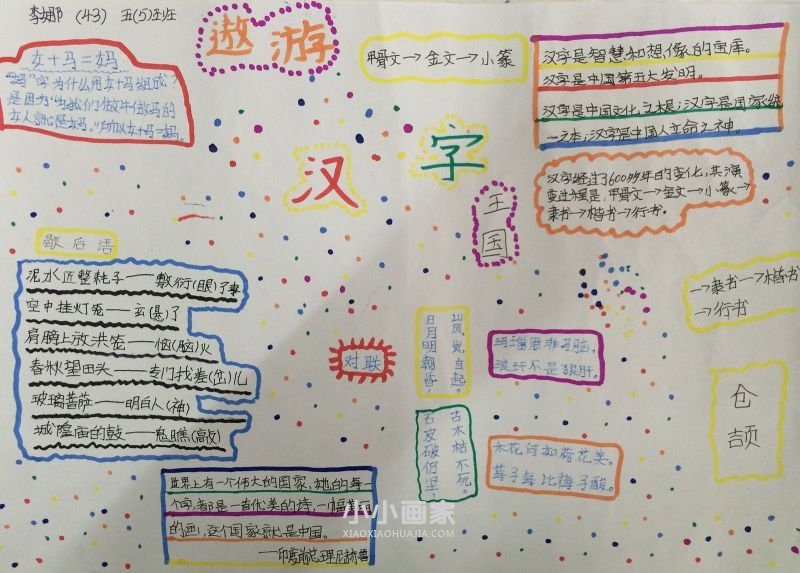 李娜 (43) 五(5)班
遨游
汉字
王国
女+马=妈
"妈"字为什么用女+马组成?
女人就是妈。"所以女+马=妈。
甲骨文→金文→小篆
汉字是智慧和想像的宝库。
汉字是中国第五大发明。
汉字是中国文化之根;汉字是国家统
一之本;汉字是中国人立命之神。
汉字经过了6000多年的变化,其演
变过程是:甲骨文→金文→小篆→
隶书→楷书→行书。
→隶书→楷书
→行书
歇后语
泥水匠整耗子——敷衍(眼)了事
空中挂灯笼——玄(悬)了
肩膀上放烘笼——恼(脑)火
春秋望田头——专门找差(岔)儿
玻璃菩萨——明白人(神)
城隍庙的鼓——鬼瞧(敲)
对联
日月明朝昏,
山风岚自起。
石皮破仍坚
古木枯不死。
玛瑙原非马脑。
琅玕不是狼肝。
木花何如荷花美。
仓
颉
世界上有一个伟大的国家,她的每一
个字,都是一首优美的诗,一幅美丽
的画,这个国家就是中国。
——印度前总理尼赫鲁
小小画家
XIAOXIAOHUAJIA.COM